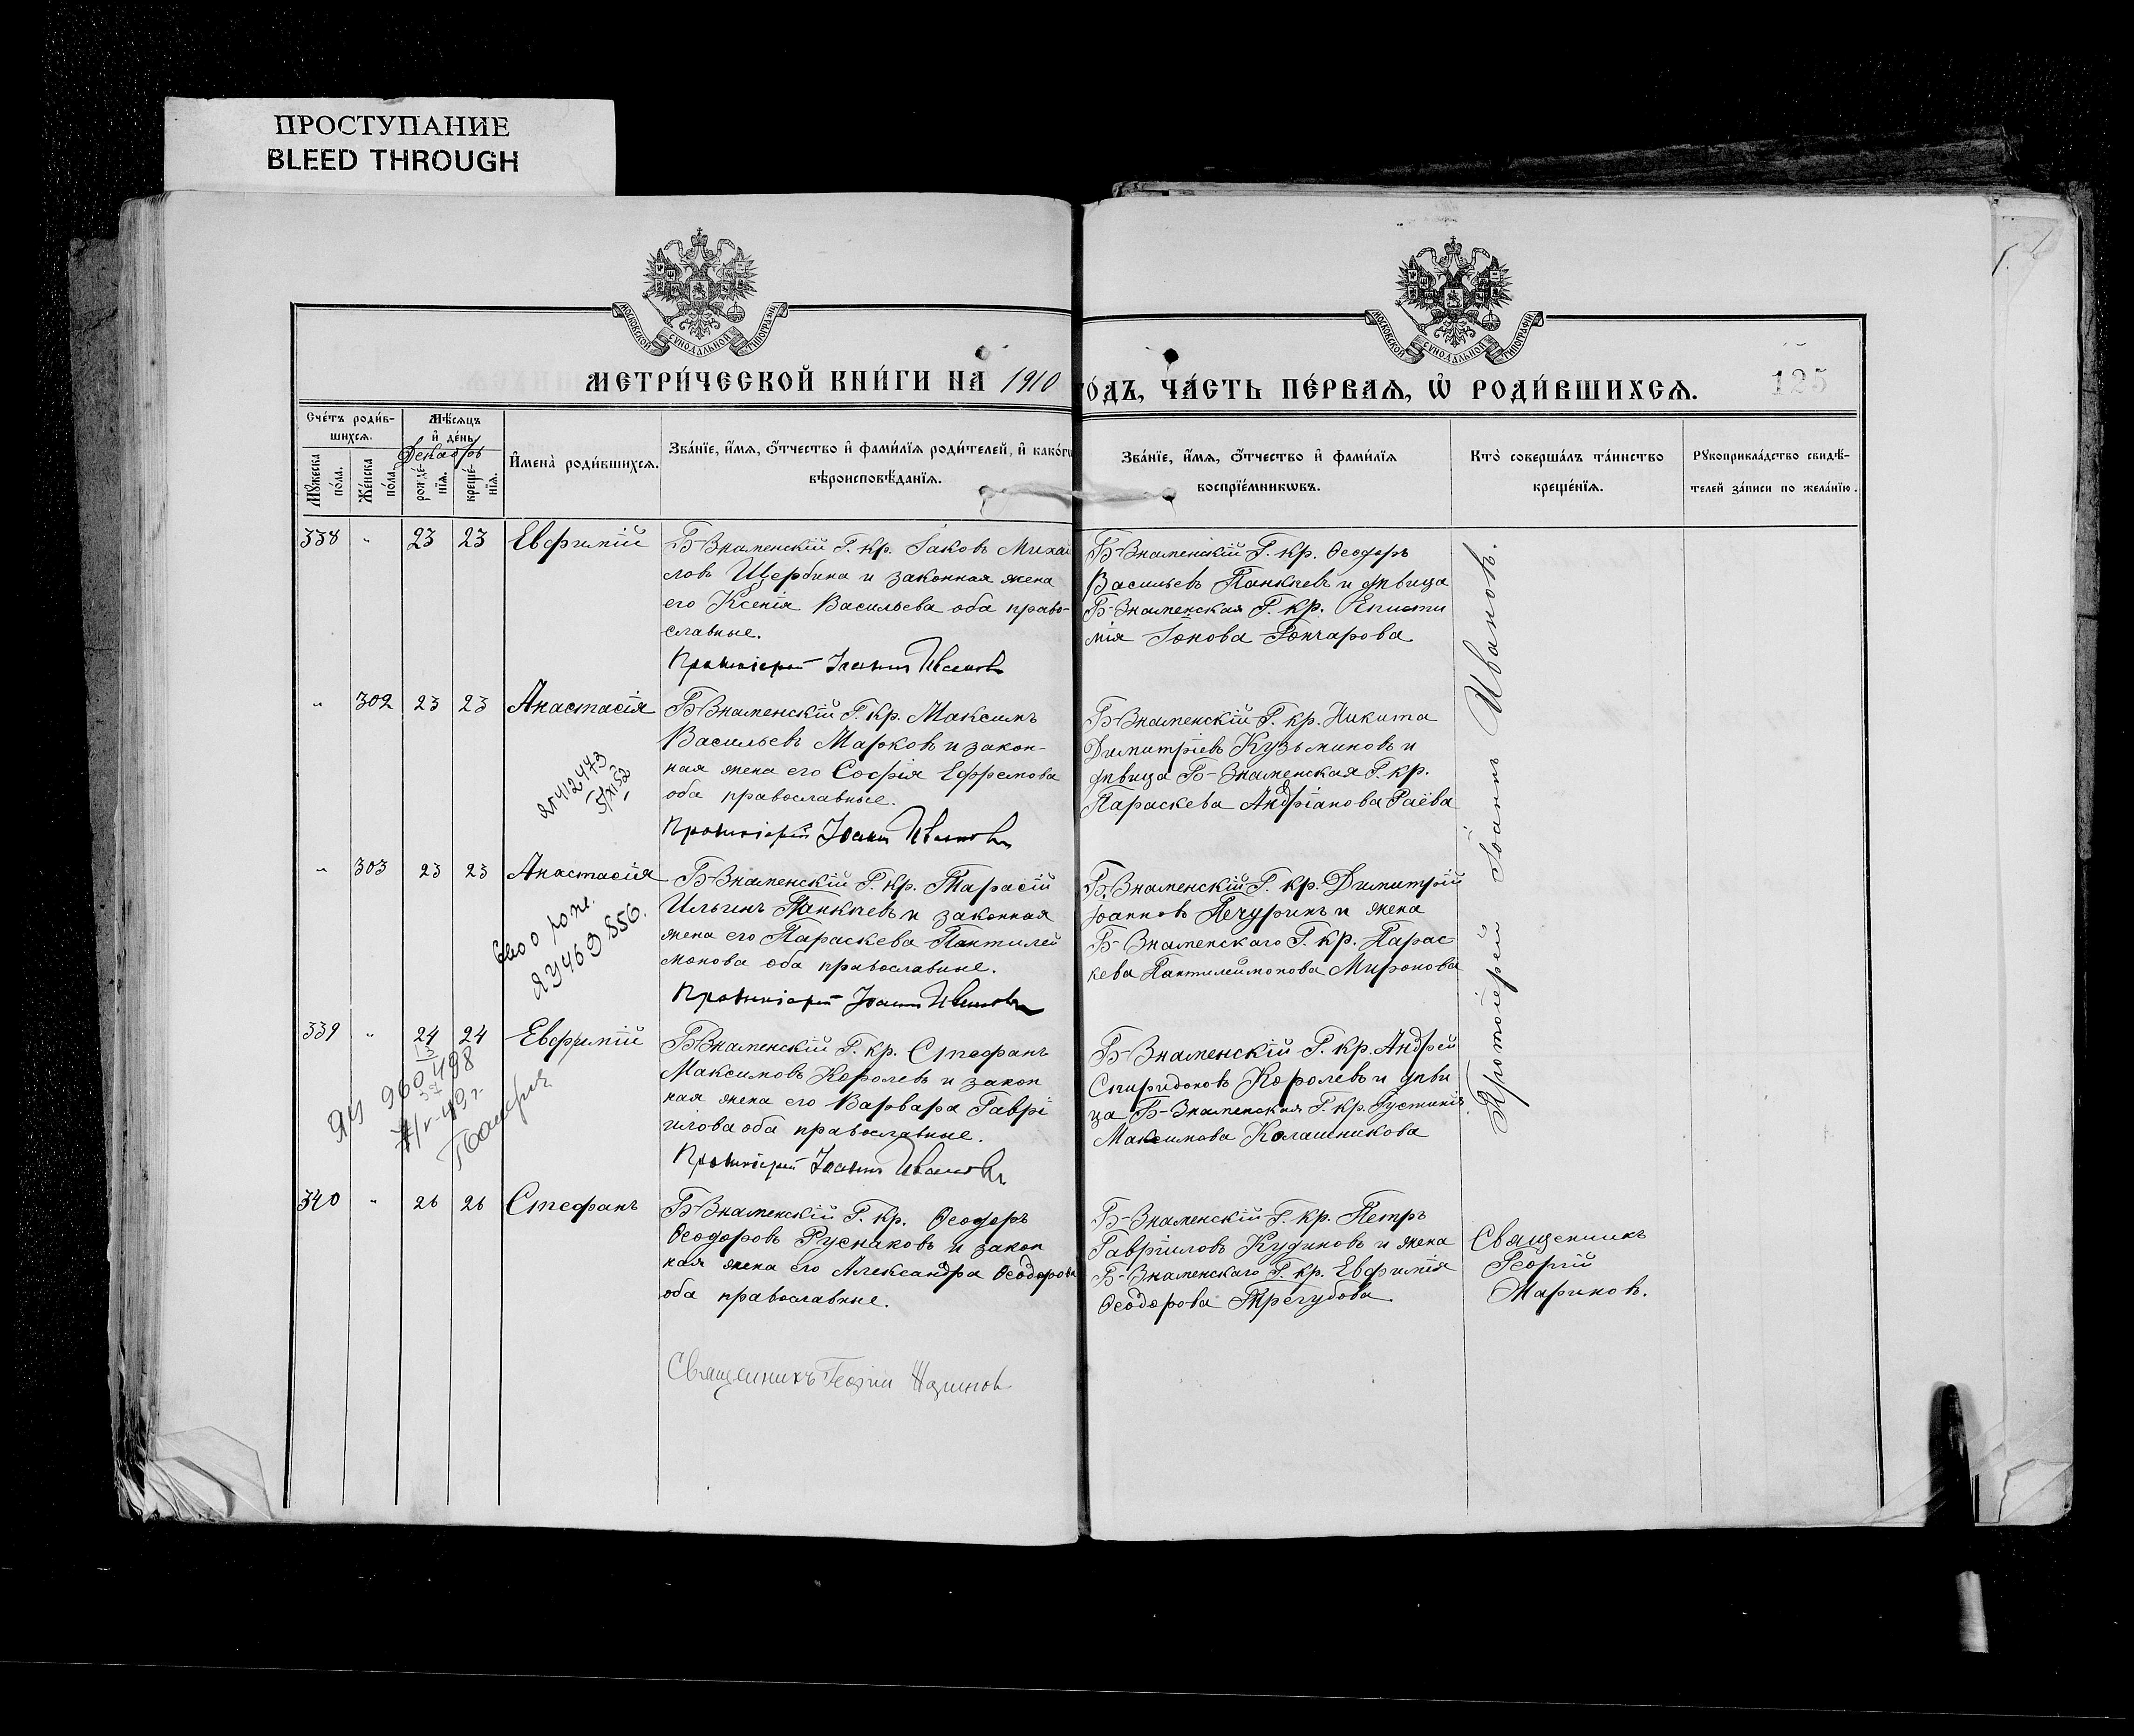 ПРОСТУПАНИЕ
BLEED THROUGH
МОСКОВСКОЙ СУНОДАЛЬНОЙ ТИПОГРАФІИ
МОСКОВСКОЙ СУНОДАЛЬНОЙ ТИПОГРАФІИ
МЕТРИ́ЧЕСКОЙ КНИ́ГИ НА 1910
ГО́ДЪ, ЧА́СТЬ ПЕ́РВАѦ, Ѡ РОДИ́ВШИХСѦ.
125
Сче́тъ роди́в-
шихсѧ.
Мꙋ́жеска по́ла.
Же́нска по́ла.
Мѣ́сѧцъ
и҆ де́нь.
Декабрь
рожде́-нїѧ.
креще́-нїѧ.
И҆мена̀ роди́вшихсѧ.
Зва́нїе, и҆́мѧ, ѻ҆́тчество и҆ фами́лїѧ роди́телей, и҆ како́гѡ
вѣроисповѣ́данїѧ.
Зва́нїе, и҆́мѧ, ѻ҆́тчество и҆ фами́лїѧ
воспрїе́мникѡвъ.
Кто̀ соверша́лъ та́инство
креще́нїѧ.
Рꙋкоприкла́дство свидѣ́-
телей за́писи по жела́нїю.
338 " 23 23 Евфимій
Б-Знаменскій Г. кр. Іаковъ Михаи
ловъ Щербина и законная жена
его Ксенія Васильева оба право-
славные.
Протоіерей Іоаннъ Ивановъ
Б-Знаменскій Г. кр. Ѳеодоръ
Васильевъ Панкневъ и дѣвица
Б-Знаменская Г. кр. Еписти
мія Іонова Гончарова
" 302 23 23 Анастасія
Б-Знаменскій Г. кр. Максимъ
Васильевъ Марковъ и закон-
ная жена его Софія Ефремова
оба православные.
Протоіерей Іоаннъ Ивановъ
412473
5/XI 52
Б-Знаменскій Г. кр. Никита
Димитріевъ Кузьминовъ и
дѣвица Б-Знаменская Г. кр.
Параскева Андріанова Раёва
" 303 23 23 Анастасія
Б-Знаменскій Г. кр. Тарасій
Ильинъ Панкневъ и законная
жена его Параскева Пантилей
монова оба православные.
Протоіерей Іоаннъ Ивановъ
Св о о рожд.
ЯУ 469856.
Б-Знаменскій Г. кр. Димитрій
Іоанновъ Печуринъ и жена
Б-Знаменскаго Г. кр. Парас
кева Пантилеймонова Миронова
339 " 24 24 Евфимій
Б-Знаменскій Г. кр. Стефанъ
Максимовъ Королевъ и закон
ная жена его Варвара Гаврі
илова оба православные.
Протоіерей Іоаннъ Ивановъ
960498
Б-Знаменскій Г. кр. Андрей
Спиридоновъ Королевъ и дѣви
ца Б-Знаменская Г. кр. Іустинія
Максимова Колашникова
Протоіерей Іоаннъ Ивановъ.
340 " 26 26 Стефанъ
Б-Знаменскій Г. кр. Ѳеодоръ
Ѳеодоровъ Руснаковъ и закон
ная жена его Александра Ѳеодорова
оба православные.
Священникъ Георгій Мариновъ
Б-Знаменскій Г. кр. Петръ
Гавріиловъ Кудиновъ и жена
Б-Знаменскаго Г. кр. Евфимія
Ѳеодорова Трегубова
Священникъ
Георгій
Мариновъ.